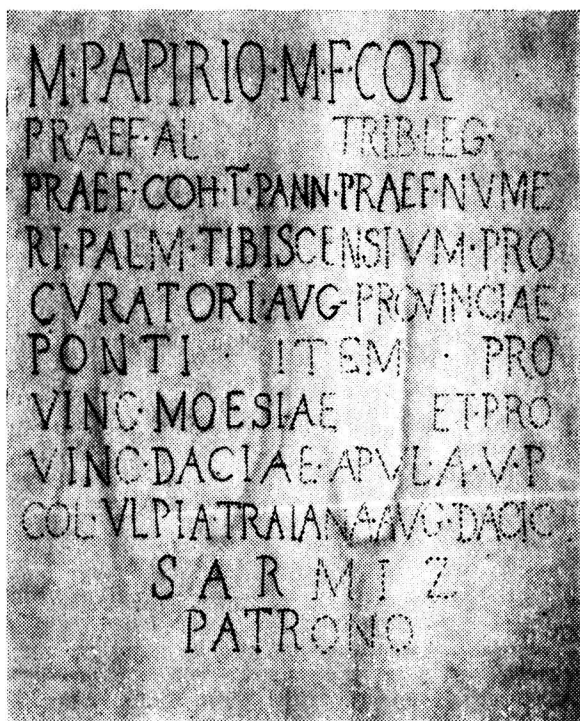 M·PAPIRIO·M·F·COR
PRAEF·AL· TRIB·LEG·
PRAEF·COH·Ī·PANN·PRAEF·NVME
RI·PALM·TIBISCENSIVM·PRO
CVRATORI·AVG·PROVINCIAE
PONTI · ITEM · PRO
VINC·MOESIAE ET·PRO
VINC·DACIAE·APVL·A·V·P
COL·VLPIA·TRAIANA·AVG·DACIC
SARMIZ
PATRONO